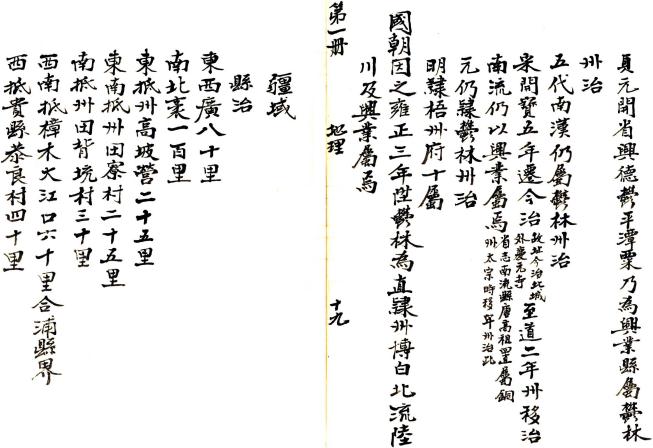 貞元間省興德鬱平潭粟乃為興業縣屬鬱林
州治
五代南漢仍屬鬱林州治
宋開寶五年遷今治故址今治北城外慶元寺至道二年州移治
南流仍以興業屬焉省志南流縣唐高祖置屬銅州太宗時移牢州治此
元仍隸鬱林州治
明隸梧州府十屬
國朝因之雍正三年陞鬱林為直隸州博白北流陸
川及興業屬焉
第一冊 地理 十九
疆域
縣治
東西廣八十里
南北袤一百里
東抵州高坡營二十五里
東南抵州田寮村二十五里
南抵州田背坑村三十里
西南抵樟木大江口六十里合浦縣界
西抵貴縣恭良村四十里